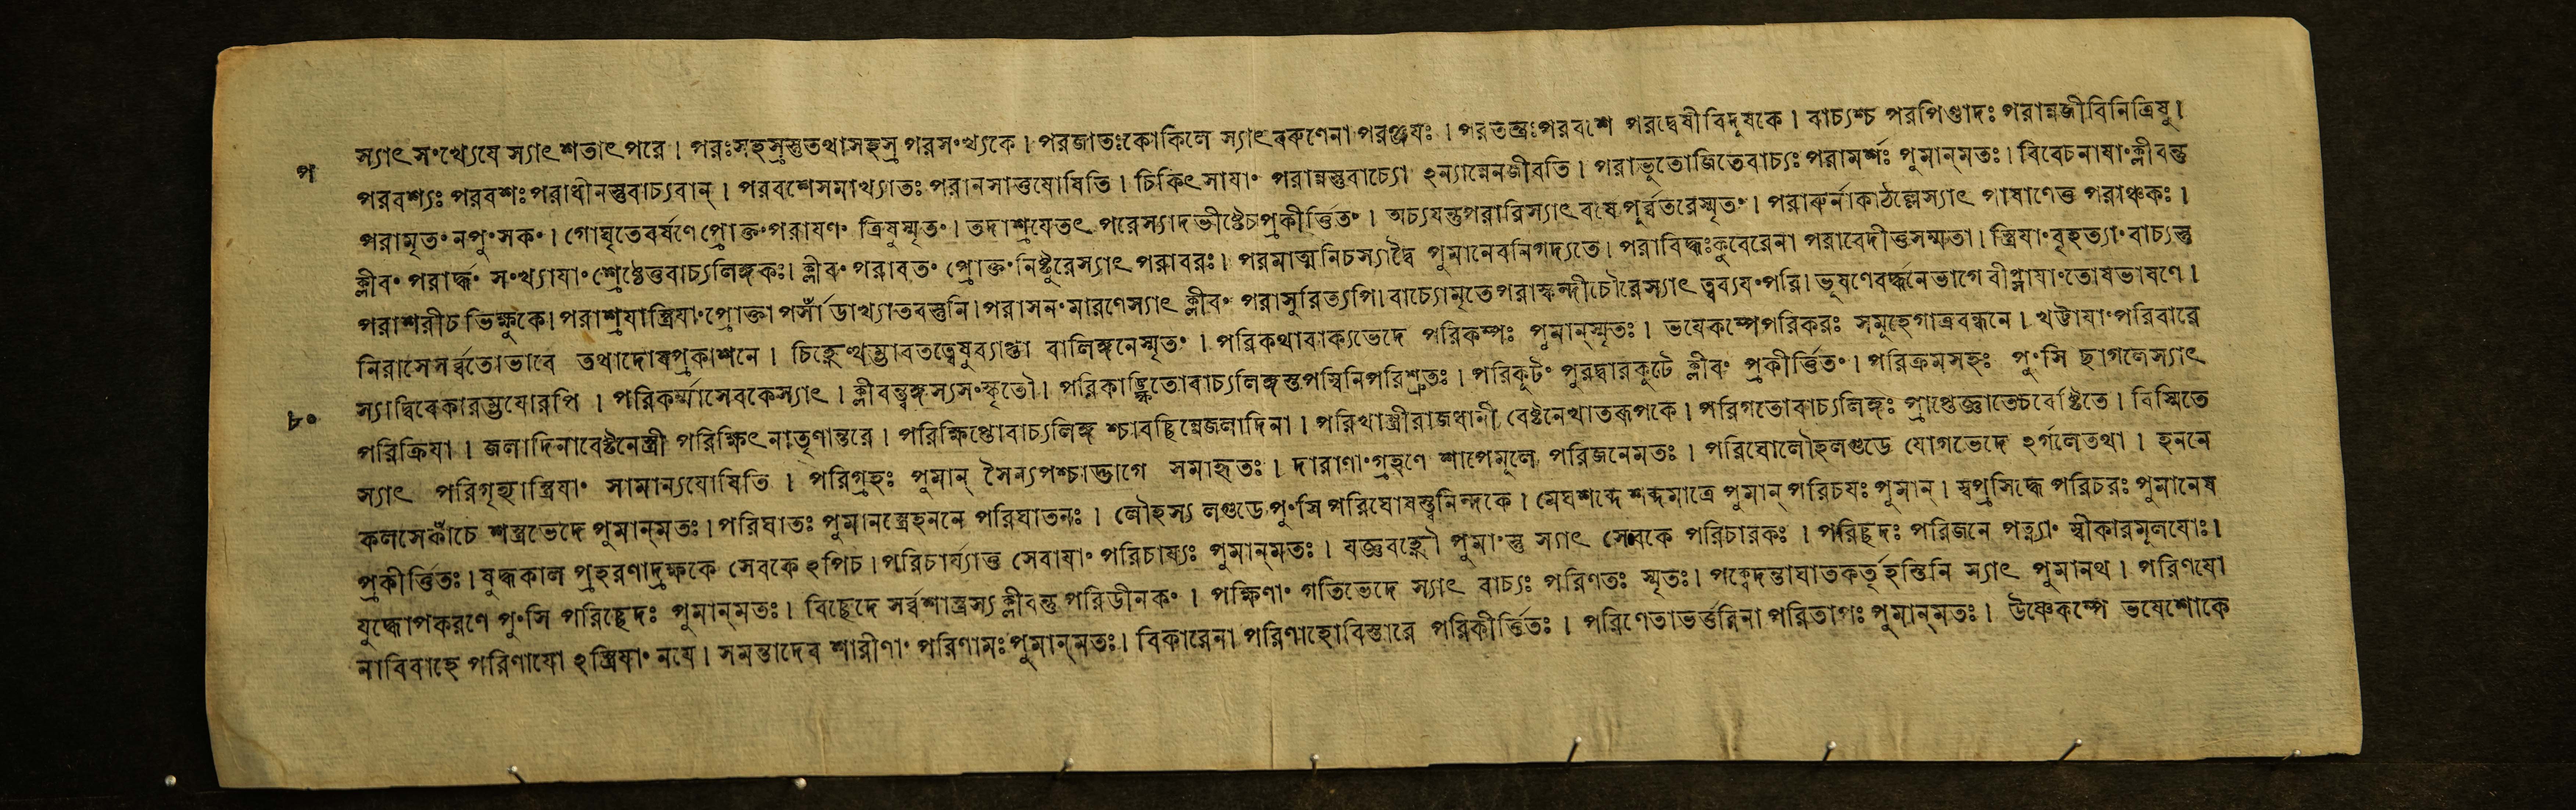 প
স্যাৎ সংখ্যেযে স্যাৎ শতাৎ পরে । পরঃসহস্রস্তুতথাসহস্র পরসংখ্যকে । পরজাতঃকোকিলে স্যাৎ বরুণেনা পরঞ্জযঃ । পরতন্ত্রঃপরবশে পরদ্বেষীবিদূষকে । বাচ্যশ্চ পরপিণ্ডাদঃ পরান্নজীবিনিত্রিষু ।
পরবশ্যঃ পরবশঃ পরাধীনস্তুবাচ্যবান্ । পরবশেসমাখ্যাতঃ পরানসাত্তুযোষিতি । চিকিৎসাযাং পরান্নস্তুবাচ্যো ঽন্যান্নেনজীবতি । পরাভুতোজিতেবাচ্যঃ পরামর্শঃ পুমান্মতঃ । বিবেচনাযাংক্লীবন্তু
পরামৃতং নপুংসকং । গোঘৃতেবর্ষণে প্রোক্তংপরাযণং ত্রিষুস্মৃতং । তদাশ্রযেতৎ পরেস্যাদভীষ্টেচপ্রকীর্ত্তিতং । অচ্যযন্তুপরারিস্যাৎ বষেপূর্ব্বতরেস্মৃতং । পরারুর্নাকাঠল্লেস্যাৎ পাষাণেত্ত পরাঞ্চকঃ ।
ক্লীবং পরার্দ্ধং সংখ্যাযাং শ্রেষ্ঠেত্তবাচ্যলিঙ্গকঃ । ক্লীবং পরাবতং প্রোক্তং নিষ্টুরেস্যাৎ পরাবরঃ । পরমাত্মনিচস্যাদ্বৈ পুমানেবনিগদ্যতে । পরাবিদ্ধঃকুবেরেনা পরাবেদীত্তসম্মতা । স্ত্রিযাংবৃহত্যাংবাচ্যস্তু
পরাশরীচ ভিক্ষুকে । পরাশ্রযাস্ত্রিযাংপ্রোক্তা পর্সাঁডাখ্যাতবস্তুনি । পরাসনংমারণেস্যাৎ ক্লীবং পরাসুরিত্যপি । বাচ্যোমৃতেপরাস্কন্দীচৌরেস্যাৎ ত্বব্যযংপরি । ভূষণেবর্দ্ধনেভাগে বীপ্সাযাংতোষভাষণে ।
নিরাসেসর্ব্বতোভাবে তথাদোষপ্রকাশনে । চিহ্নেত্থম্ভাবতত্বেষুব্যাপ্তা বালিঙ্গনেস্মৃতং । পরিকথাবাক্যভেদে পরিকম্পঃ পুমান্স্মৃতঃ । ভযেকম্পেপরিকরঃ সমূহেগাত্রবন্ধনে । খট্টাযাংপরিবারে
৮০
স্যাদ্বিবেকারম্ভযোরপি । পরিকর্ম্মাসেবকেস্যাৎ । ক্লীবন্ত্বঙ্গস্যসংস্কৃতৌ । পরিকাঙ্ক্ষিতোবাচ্যলিঙ্গস্তপস্বিনিপরিশ্রুতঃ । পরিকূটং পুরদ্বারকুটে ক্লীবং প্রকীর্ত্তিতং । পরিক্রমসহঃ পুংসি ছাগলেস্যাৎ
পরিক্রিযা । জলাদিনাবেষ্টনেস্ত্রী পরিক্ষিৎ নাতৃণান্তরে । পরিক্ষিপ্তোবাচ্যলিঙ্গ শ্চাবছিন্নেজলাদিনা । পরিখাস্ত্রীরাজধানী বেষ্টনেখাতরূপকে । পরিগতোবাচ্যলিঙ্গঃ প্রাপ্তেজ্ঞাতেচবেষ্টিতে । বিস্মিতে
স্যাৎ পরিগৃহ্যাস্ত্রিযাং সামান্যযোষিতি । পরিগ্রহঃ পুমান্ সৈন্যপশ্চাদ্ভাগে সমাহৃতঃ । দারাণাংগ্রহণে শাপেমূলে পরিজনেমতঃ । পরিঘোলৌহলগুডে যোগভেদে ঽর্গলেতথা । হননে
কলসেকাঁচে শস্ত্রভেদে পুমান্মতঃ । পরিঘাতঃ পুমানস্ত্রেহননে পরিঘাতনঃ । লৌহস্য লগুডে পুংসি পরিঘোষস্ত্বনিন্দকে । মেঘশব্দে শব্দমাত্রে পুমান্ পরিচযঃ পুমান্ । স্বপ্রসিদ্ধে পরিচরঃ পুমানেষ
প্রকীর্ত্তিতঃ । যুদ্ধকাল প্রহরণাদ্রক্ষকে সেবকে ঽপিচ । পরিচার্য্যাত্ত সেবাযাং পরিচায্যঃ পুমান্মতঃ । যজ্ঞবহ্নৌ পুমাংস্তু স্যাৎ সেবকে পরিচারকঃ । পরিছদঃ পরিজনে পত্ন্যাং স্বীকারমূলযোঃ ।
যুদ্ধোপকরণে পুংসি পরিচ্ছেদঃ পুমান্মতঃ । বিছেদে সর্ব্বশাস্ত্রস্য ক্লীবন্তু পরিডীনকং । পক্ষিণাং গতিভেদে স্যাৎ বাচ্যঃ পরিণতঃ স্মৃতঃ । পক্বেদন্তাঘাতকর্তৃহস্তিনি স্যাৎ পুমানথ । পরিণযো
নাবিবাহে পরিণাযো ঽস্ত্রিযাং নযে । সমন্তাদেব শারীণাং পরিণামঃ পুমান্মতঃ । বিকারেনা পরিণাহোবিস্তারে পরিকীর্ত্তিতঃ । পরিণেতাভর্ত্তরিনা পরিতাপঃ পুমান্মতঃ । উষ্ণেকম্পে ভযেশোকে